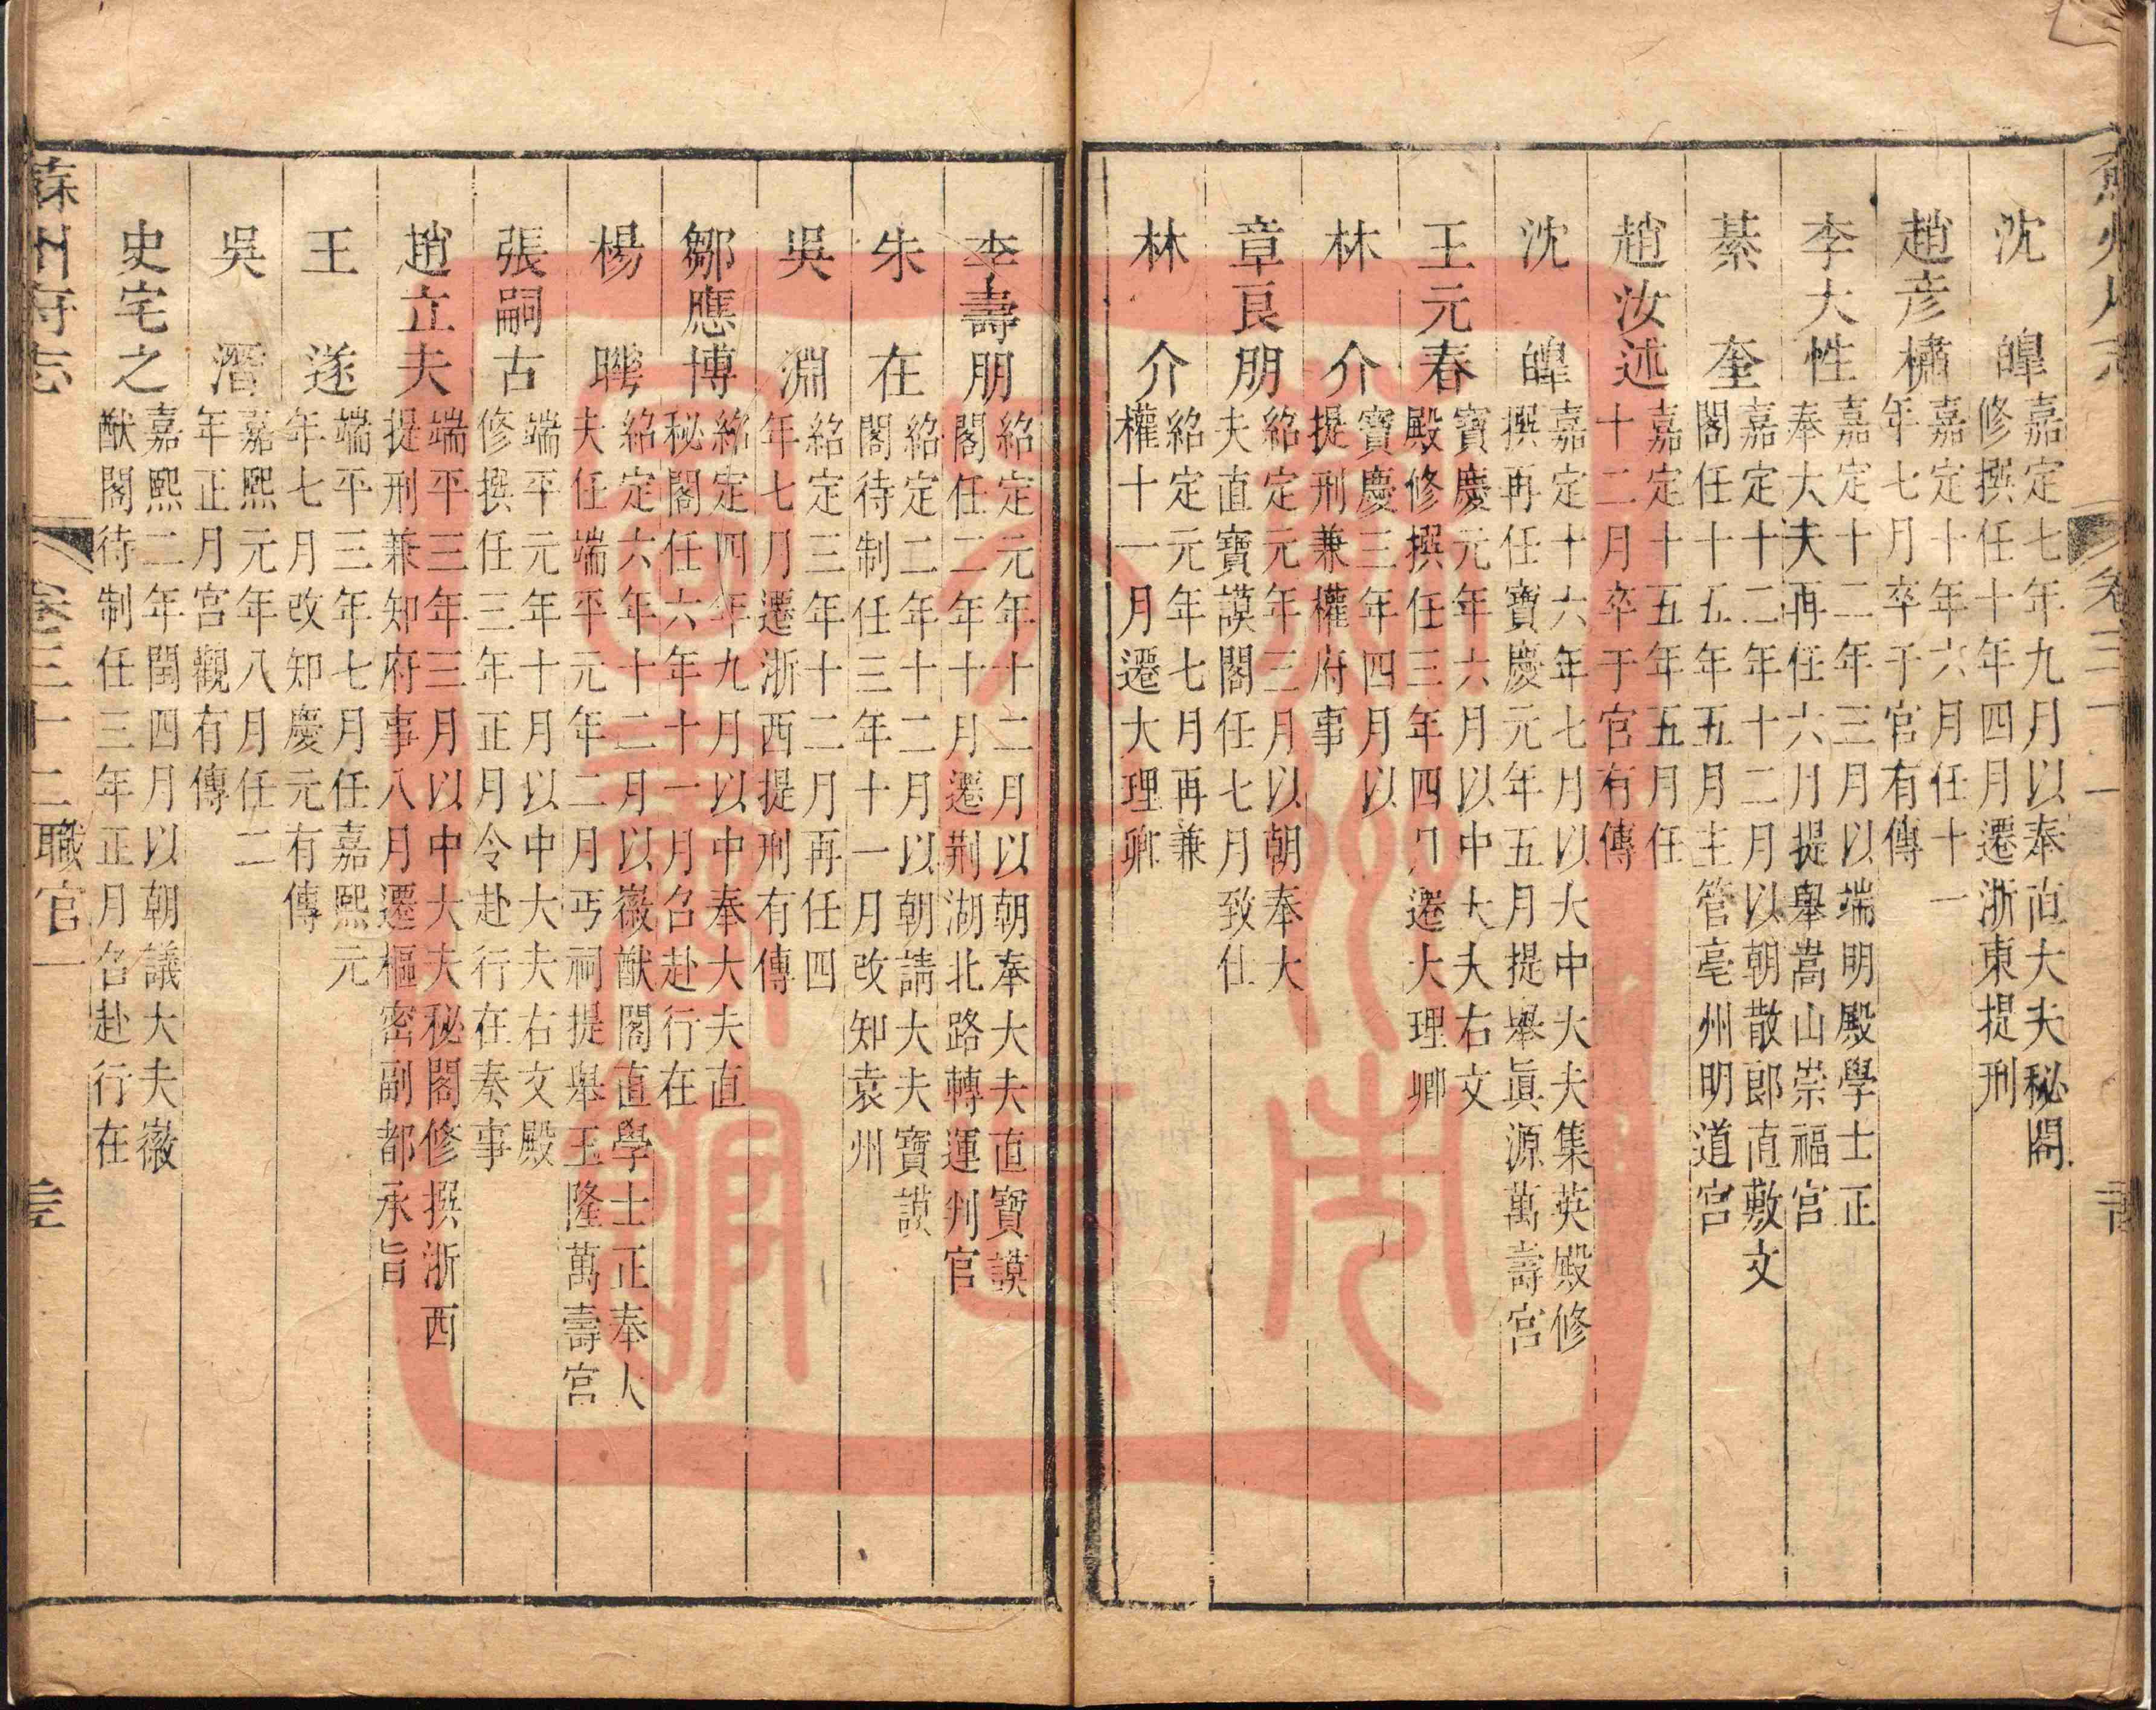 沈　皥
嘉定七年九月以奉直大夫秘閣
修撰任十年四月遷浙東提刑
趙彦橚
嘉定十年六月任十一
年七月卒于官有傳
李大性
嘉定十二年三月以端明殿學士正
奉大夫再任六月提舉嵩山崇福宫
綦　奎
嘉定十二年十二月以朝散郎直敷文
閣任十五年五月主管亳州明道宫
趙汝述
嘉定十五年五月任
十二月卒于官有傳
沈　皥
嘉定十六年七月以大中大夫集英殿修
撰再任寶慶元年五月提舉眞源萬壽宫
王元春
寶慶元年六月以中大夫右文
殿修撰任三年四月遷大理卿
林　介
寶慶三年四月以
提刑兼權府事
章良朋
紹定元年三月以朝奉大
夫直寶謨閣任七月致仕
林　介
紹定元年七月再兼
權十一月遷大理卿
李壽朋
紹定元年十二月以朝奉大夫直寶謨
閣任二年十月遷荆湖北路轉運判官
朱　在
紹定二年十二月以朝請大夫寶謨
閣待制任三年十一月改知袁州
吳　淵
紹定三年十二月再任四
年七月遷浙西提刑有傳
鄒應博
紹定四年九月以中奉大夫直
秘閣任六年十一月召赴行在
楊　聯
紹定六年十二月以徽猷閣直學士正奉大
夫任端平元年二月丐祠提舉玉隆萬壽宫
張嗣古
端平元年十月以中大夫右文殿
修撰任三年正月令赴行在奏事
趙立夫
端平三年三月以中大夫秘閣修撰浙西
提刑兼知府事八月遷樞密副都承旨
王　遂
端平三年七月任嘉熙元
年七月改知慶元有傳
吳　潛
嘉熙元年八月任二
年正月宫觀有傳
史宅之
嘉熙二年閏四月以朝議大夫徽
猷閣待制任三年正月召赴行在
蘇州府志
卷三十二職官一